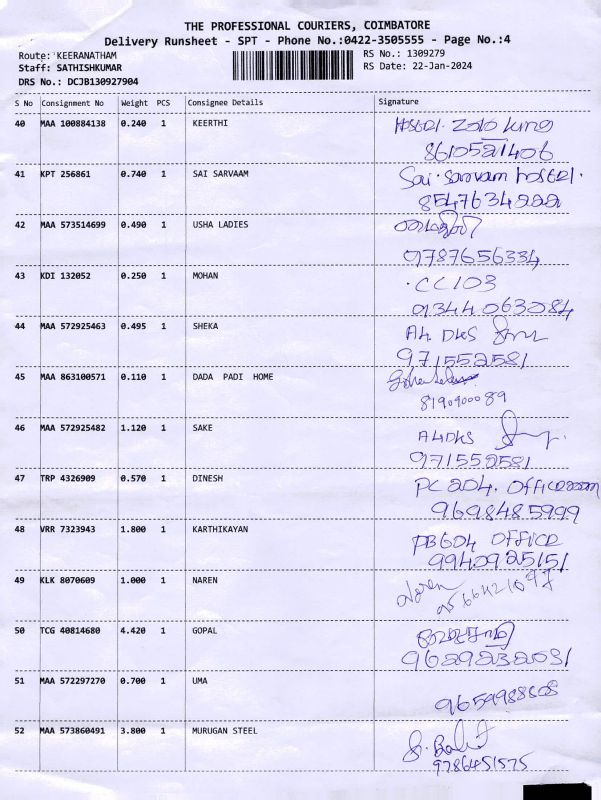 THE PROFESSIONAL COURIERS, COIMBATORE
Delivery Runsheet - SPT - Phone No.:0422-3505555 - Page No.:4
Route: KEERANATHAM
RS No.: 1309279
Staff: SATHISHKUMAR
RS Date: 22-Jan-2024
DRS No.: DCJB130927904
S No Consignment No Weight PCS Consignee Details Signature
40 MAA 100884138 0.240 1 KEERTHI
Hostel. Zolo King
8610521406
41 KPT 256861 0.740 1 SAI SARVAAM Sai. Sarvam hostel.
8547634222
42 MAA 573514699 0.490 1 USHA LADIES
9787656334
43 KDI 132052 0.250 1 MOHAN CC103
01344063084
44 MAA 572925463 0.495 1 SHEKA A4 DKS
971552581
45 MAA 863100571 0.110 1 DADA PADI HOME
8190900089
46 MAA 572925482 1.120 1 SAKE A4DKS
971552581
47 TRP 4326909 0.570 1 DINESH PC 204. Office
9698485999
48 VRR 7323943 1.800 1 KARTHIKAYAN PB604 OFFICE
9940925151
49 KLK 8070609 1.000 1 NAREN Naren
50 TCG 40814680 4.420 1 GOPAL
9629232031
51 MAA 572297270 0.700 1 UMA
9659988608
52 MAA 573860491 3.800 1 MURUGAN STEEL
9786451575